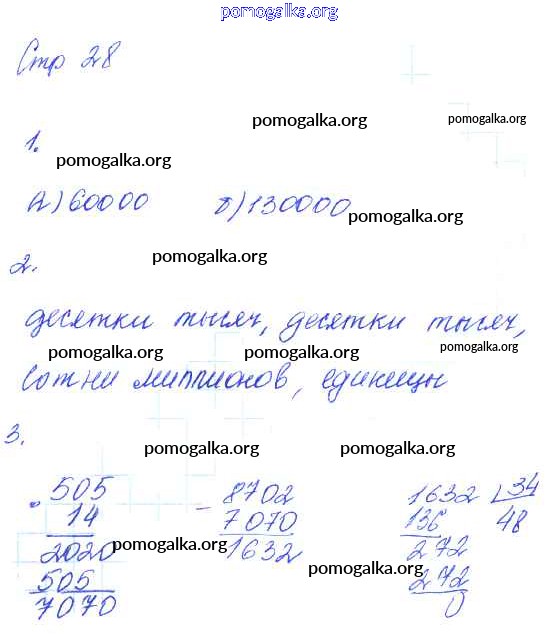 pomogalka.org
Стр 28
pomogalka.org pomogalka.org
1.
pomogalka.org
А) 60000 б) 130000
pomogalka.org
pomogalka.org
2.
десятки тысяч, десятки тысяч,
pomogalka.org pomogalka.org pomogalka.org
сотни миллионов, единицы
3.
pomogalka.org pomogalka.org
505 8702 1632 34
14 - 7070 136 48
2020 1632 272
pomogalka.org pomogalka.org
505 272
7070 0